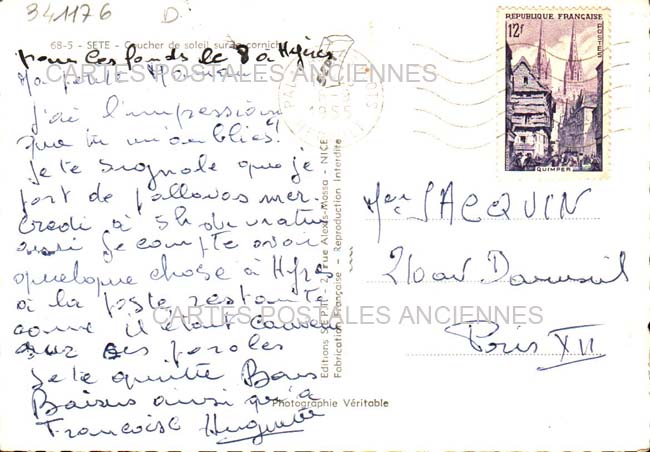 341176 D.
68-5 - SETE - Coucher de soleil sur la corniche
pour les fonds le 8 à Hyères
Ma petite Maman
CARTES POSTALES ANCIENNES
j'ai l'impression
que tu m'oublies!
Je te signale que je
part de Pallavas mer-
credi à 5h du matin
aussi je compte avoir
quelque chose à Hyères
à la poste restante
comme il était convenu
CARTES POSTALES ANCIENNES
sur ses paroles
Je te quitte Bons
Baisers ainsi qu'à
Françoise Huguette
Editions S.E.P.T. - 2, rue Alexis-Mossa - NICE
Fabrication Française - Reproduction Interdite
Photographie Véritable
REPUBLIQUE FRANÇAISE
12F
POSTES
QUIMPER
Mme JACQUIN
21 av Daumesnil
Paris XII